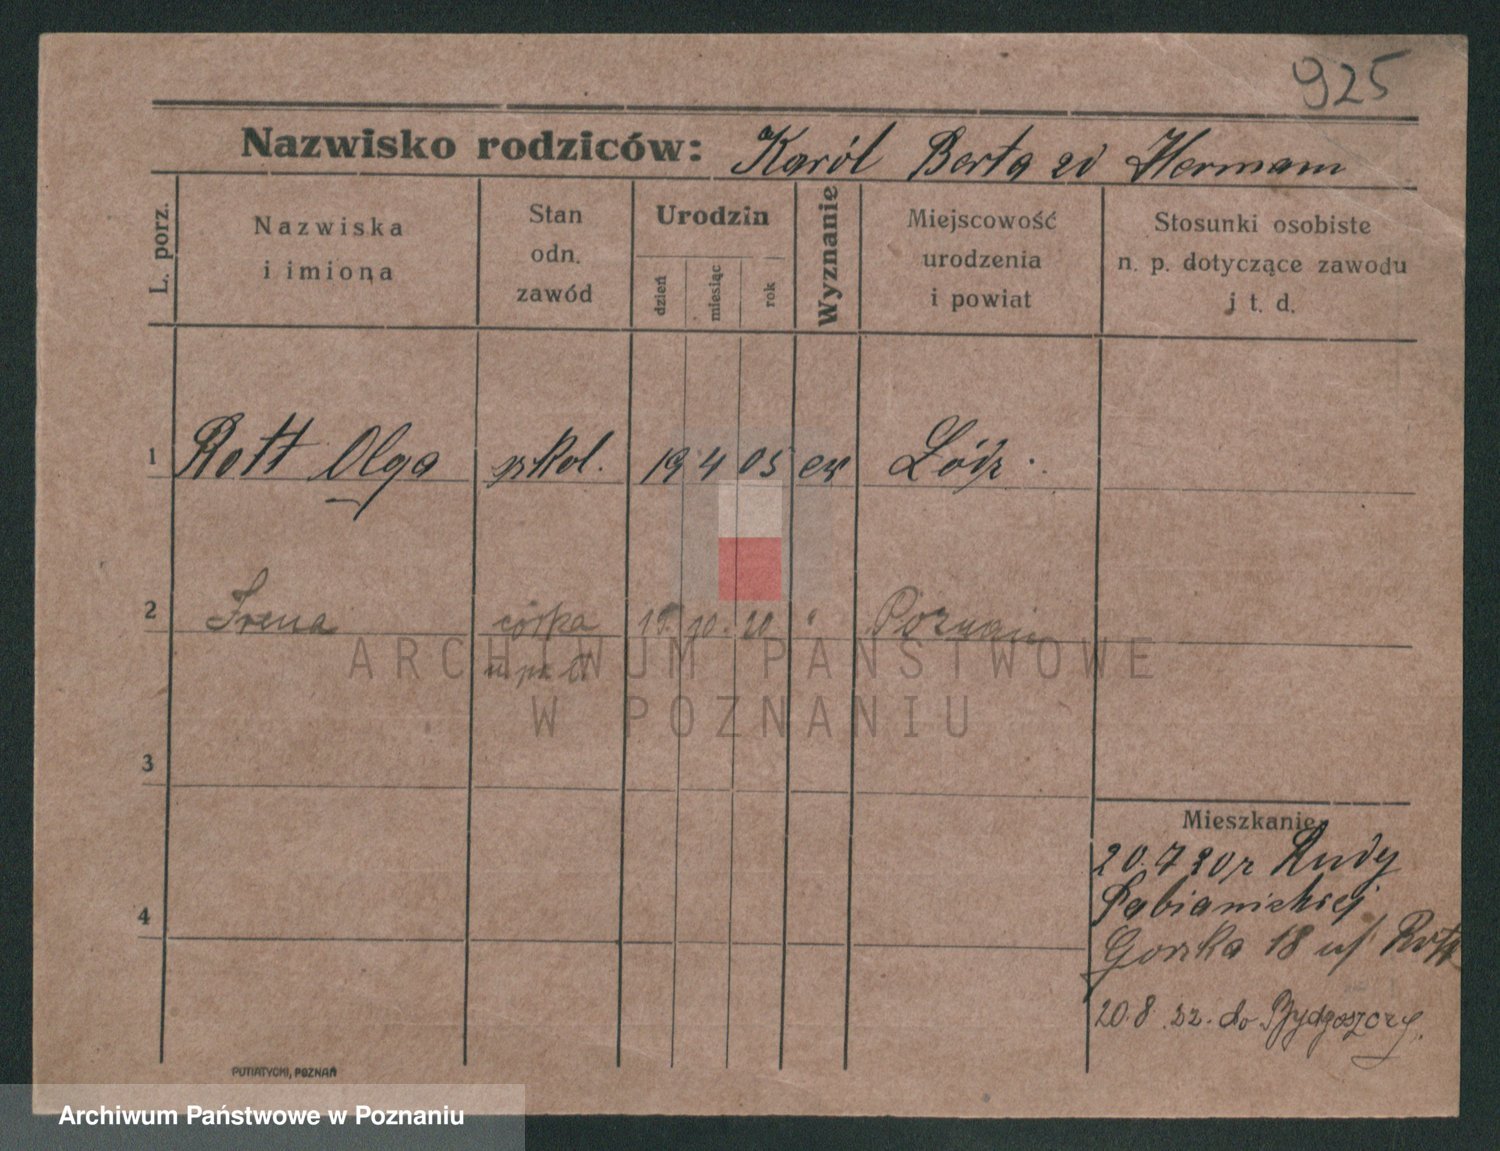 925
Nazwisko rodziców: Karól Berta zd Hermann
L. porz.
Nazwiska
i imiona
Stan
odn.
zawód
Urodzin
dzień
miesiąc
rok
Wyznanie
Miejscowość
urodzenia
i powiat
Stosunki osobiste
n. p. dotyczące zawodu
j t. d.
1 Rott Olga 19 4 05 ew Łódz
2 Irena córka 10. 20 " Poznań
ARCHIWUM PAŃSTWOWE
W POZNANIU
3
Mieszkanie
20.7 20 r Rudy
Pabianickiej
4
Gorska 18 u/ Rott
20.8 22. do Bydgoszczy.
PUTIATYCKI, POZNAŃ
Archiwum Państwowe w Poznaniu